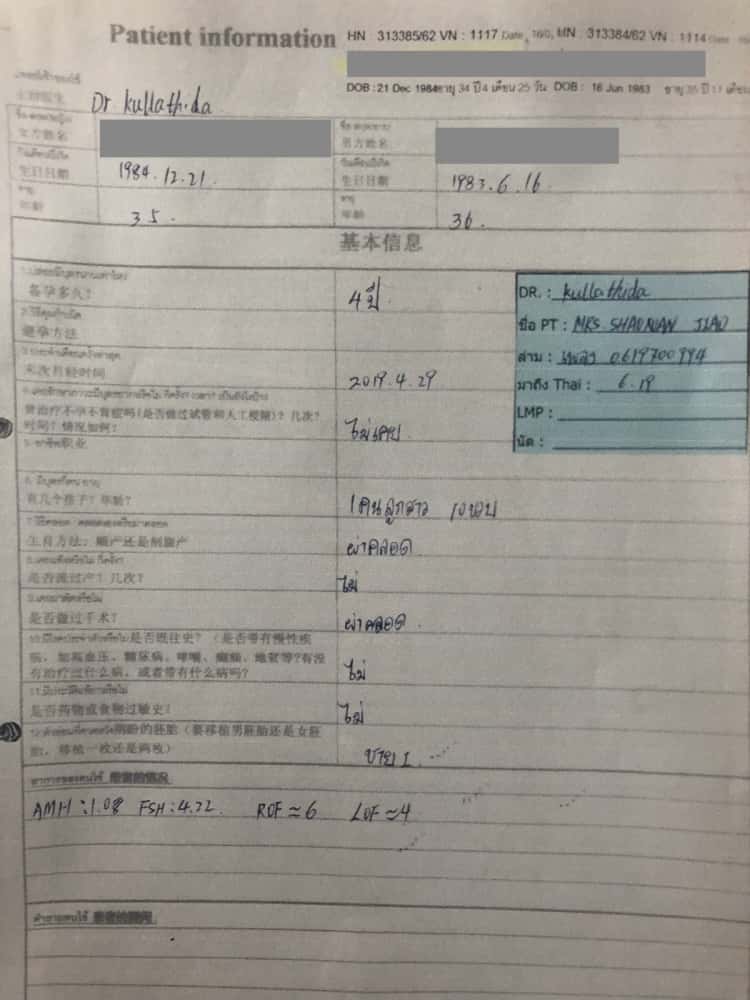 Patient information
HN : 313385/62 VN : 1117 Date 16/0 HN : 313384/62 VN : 1114 Date
DOB : 21 Dec 1984 อายุ 34 ปี 4 เดือน 25 วัน DOB : 16 Jun 1983 อายุ 35 ปี 11 เดือน
Dr kullathida
女方姓名
男方姓名
生日日期 1984.12.21. 生日日期 1983.6.16
อายุ อายุ
年龄 35. 年龄 36.
基本信息
备孕多久? 4 ปี
避孕方法
末次月经时间 2019.4.29
曾治疗不孕不育症吗(是否做过试管和人工授精)? 几次?
时间? 情况如何? ไม่เคย
职业
DR. : kullathida
ชื่อ PT : MRS. SHAONAN JIAO
ล่าม : 0619700994
มาถึง Thai : 6.19
LMP :
นัด :
有几个孩子? 年龄? 1 คน ลูกสาว 10 ขวบ
生育方法: 顺产还是剖腹产 ผ่าคลอด
是否流过产? 几次? ไม่
是否做过手术? ผ่าคลอด
是否既往史? (是否带有慢性疾
病, 如高血压, 糖尿病, 哮喘, 癫痫, 地贫等?有没
有治疗过什么病, 或者带有什么病吗? ไม่
是否药物或食物过敏史? ไม่
的胚胎 (要移植男胚胎还是女胚
胎, 移植一枚还是两枚) ชาย 1
AMH : 1.08 FSH : 4.22 ROF ≈ 6 LOF ≈ 4